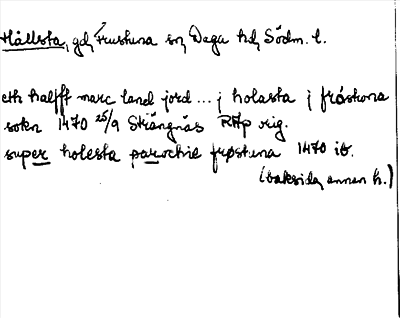 Hållsta, gd, Frustuna sn, Daga hd, Södm. l.
eth halfft marc land jord ... j holasta j fróstona
sokn 1470 25/9 Strängnäs RAp orig.
super holesta parochie frøstuna 1470 ib.
(baksida, annan h.)